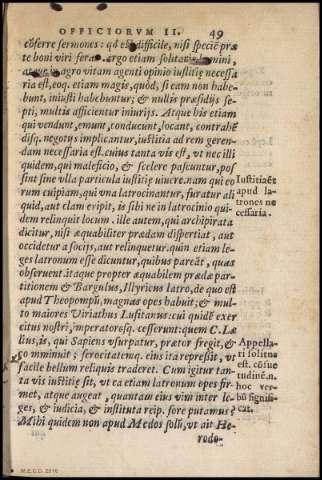 OFFICIORVM II. 49
cōferre sermones: qd̄ est difficile, nisi speciē præ
te boni viri feras. ergo etiam solitario homini,
atque in agro vitam agenti opinio iustitiæ necessa
ria est, eoq. etiam magis, quòd, si eam non habe-
bunt, iniusti habebuntur; & nullis præsidijs se-
pti, multis afficientur iniurijs. Atque his etiam
qui vendunt, emunt, conducunt, locant, contrahē
disq. negotijs implicantur, iustitia ad rem geren-
dam necessaria est. cuius tanta vis est, vt nec illi
quidem, qui maleficio, & scelere pascuntur, pos
sint sine vlla particula iustitiæ uiuere. nam qui eo
rum cuipiam, qui vna latrocinantur, furatur ali
quid, aut clam eripit, is sibi ne in latrocinio qui-
dem relinquit locum. ille autem, qui archipirata
dicitur, nisi æquabiliter prædam dispertiat, aut
occidetur a socijs, aut relinquetur. quin etiam le-
ges latronum esse dicuntur, quibus pareāt, quas
obseruent. itaque propter æquabilem prædæ par-
titionem & Bargulus, Illyricus latro, de quo est
apud Theopompū, magnas opes habuit; & mul-
to maiores Viriathus Lusitanus: cui quidē exer
citus nostri, imperatoresq. cesserunt: quem C. Læ
lius, is, qui Sapiens vsurpatur, prætor fregit, &
cōminuit; ferocitatemq. eius ita repressit, vt
facile bellum reliquis traderet. Cum igitur tan-
ta vis iustitiæ sit, vt ea etiam latronum opes fir-
met, atque augeat, quantam eius vim inter le-
ges, & iudicia, & instituta reip. fore putamus?
Mihi quidem non apud Medos solū, vt ait He-
rodo-
Iustitia ēt
apud la-
trones ne
cessaria.
Appella-
ri solitus
est. cōsue
tudinē. n.
hoc ver-
bū signifi-
cat.
M.E.C.D. 2016